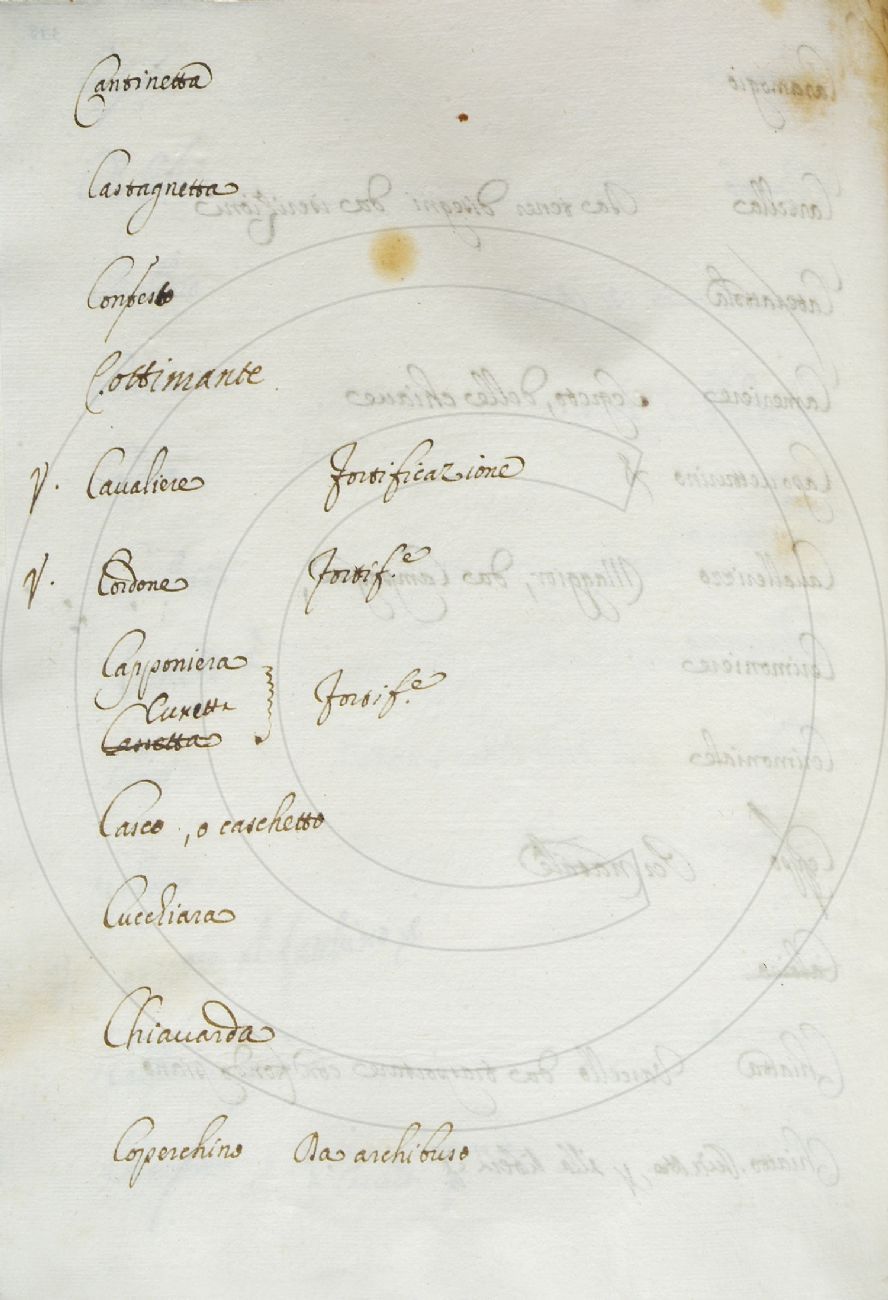 Cantinetta
Castagnetta
Contesto
Cottimante
V. Cavaliere Fortificazione
V. Cordone Fortif.e
Capponiera
Cunetta Fortif.e
Casco, o caschetto
Cucchiara
Chiavarda
Coperchino Da archibuso